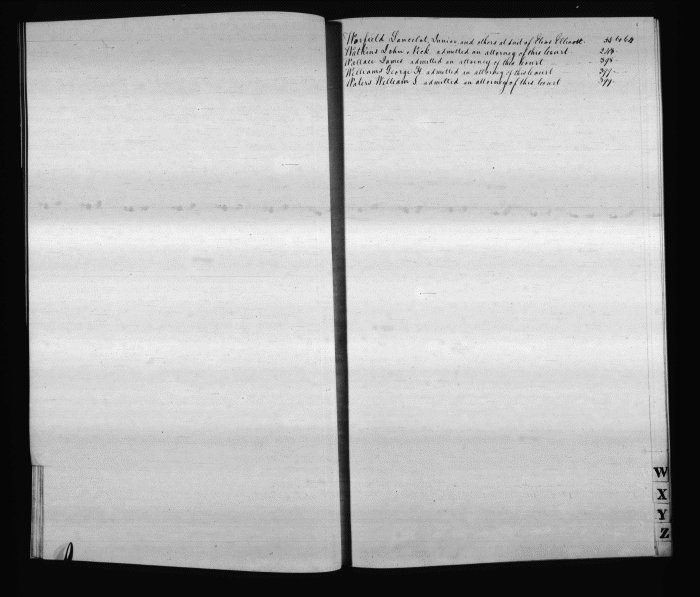 Warfield Lancelot, Junior, and others ad suit of Elias Ellicott 55 to 64
Watkins John admitted an attorney of this Court
Wallace James admitted an attorney of this Court
Williams George H. admitted an attorney of this Court
Waters William S admitted an attorney of this Court
W
X
Y
Z